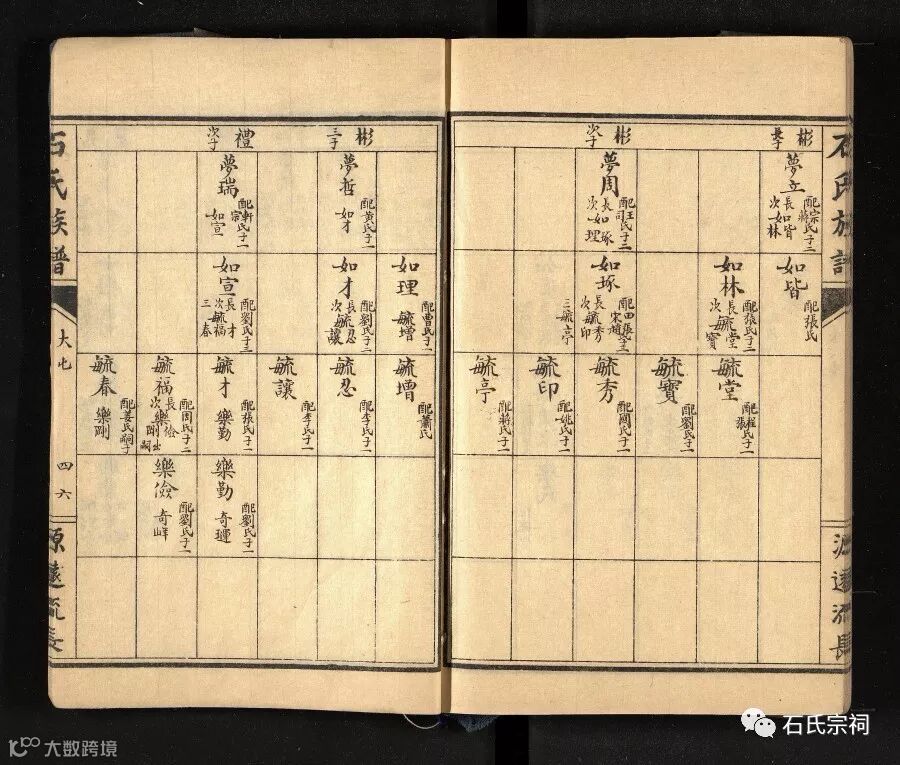 石氏族譜
源遠流長
彬長子
夢立
配宗氏蔣子二
長如皆
次如林
彬次子
夢周
配王氏司子二
長如琢
次如理
如皆
配張氏
如林
配張氏子二
長毓堂
次毓寶
如琢
長毓秀
次毓印
三毓亭
毓堂
配崔氏張子一
毓寶
配劉氏子一
毓秀
毓印
配姚氏子一
毓亭
配蔣氏子一
彬三子
夢哲
配黄氏子一
如才
禮次子
夢瑞
配軒氏宗子一
如宣
如理
配曹氏子一
毓增
如才
配劉氏子二
長毓忍
次毓讓
如宣
配劉氏子三
長才
次毓福
三春
毓增
配蕭氏
毓忍
配李氏子一
毓讓
配李氏子一
毓才
配張氏子一
樂勤
毓福
配周氏子二
長儉
次樂剛出嗣
毓春
配姜氏嗣子
樂剛
樂勤
配劉氏子一
樂儉
配劉氏子一
奇峰
石氏族譜
大屯
四六
源遠流長
石氏宗祠
大数跨境